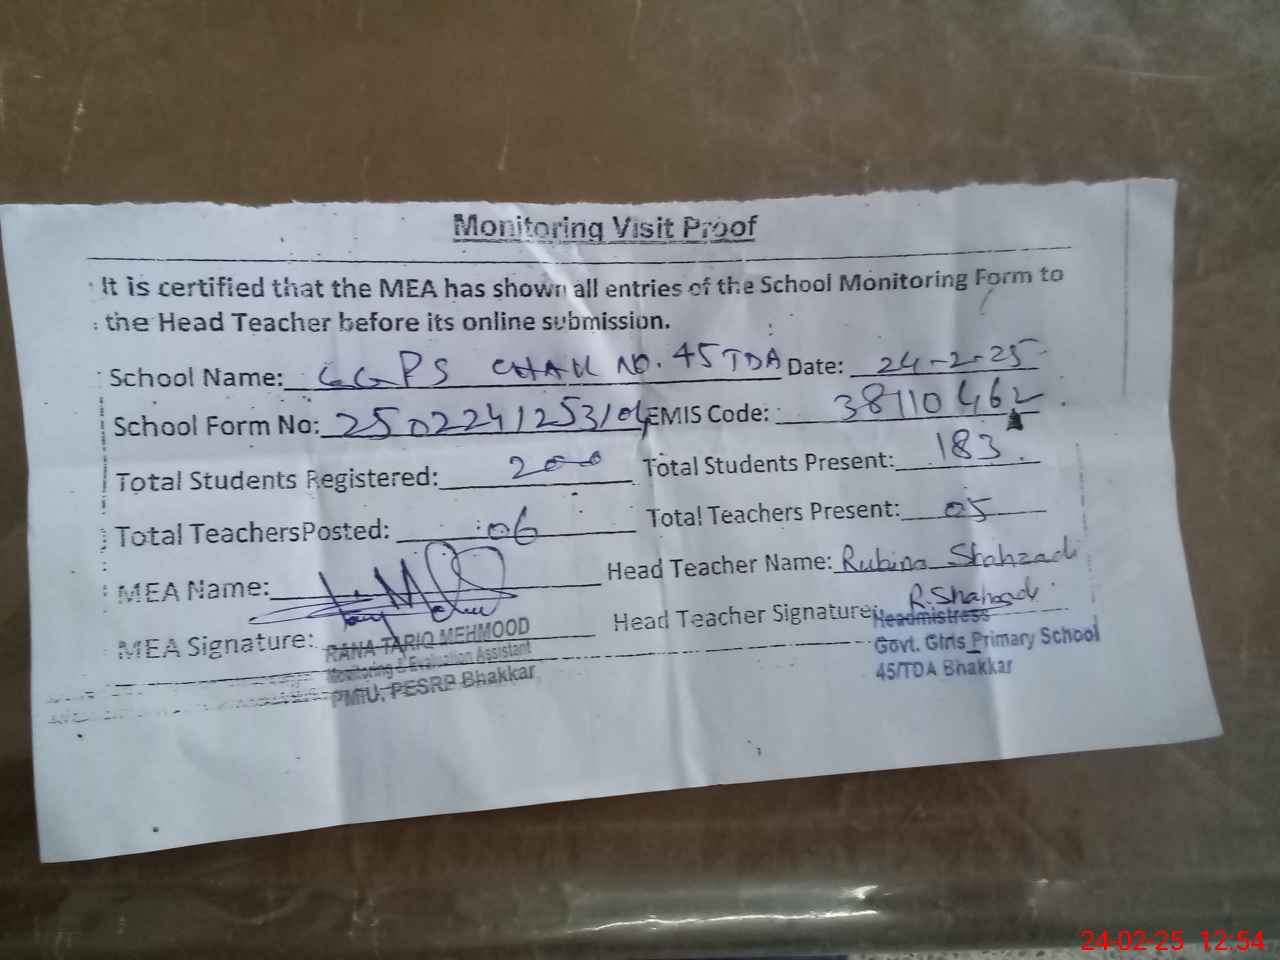 Monitoring Visit Proof
It is certified that the MEA has shown all entries of the School Monitoring Form to
the Head Teacher before its online submission.
School Name: GGPS CHAK NO. 45 TDA Date: 24-2-25
School Form No: 2502241253104 EMIS Code: 38110462
Total Students Registered: 200 Total Students Present: 183
Total TeachersPosted: 06 Total Teachers Present: 05
MEA Name: Head Teacher Name: Rubina Shahzadi
MEA Signature: Head Teacher Signature: R.Shahzadi
RANA TARIQ MEHMOOD
Monitoring & Evaluation Assistant
PMIU, PESRP Bhakkar
Headmistress
Govt. Girls Primary School
45/TDA Bhakkar
24-02-25 12:54